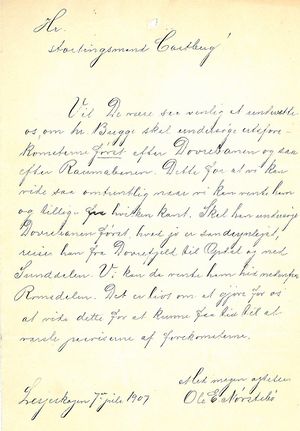 Hr.
Stortingsmand Castberg!
Vil De være saa venlig at underrette
os, om hr. Bugge skal undersøge
komsterne først efter Dovrebanen og saa
efter Raumabanen. Dette for at vi kan
vide saa omtrentlig naar vi kan vente ham
og tillige fra hvilken kant. Skal han undersøge
Dovrebanen først, hvad jo er sandsynligst,
reiser han fra Dovrefjeld til Opdal og ned
Sundalen. Vi kan da vente ham hid
Romsdalen. Det er lidt om at gjøre for os
at vide dette for at kunne faa tid til at
varsle paaviserne af forekomsterne.
Med megen agtelse
Lesjeskogen 7de juli 1907. Ole E.